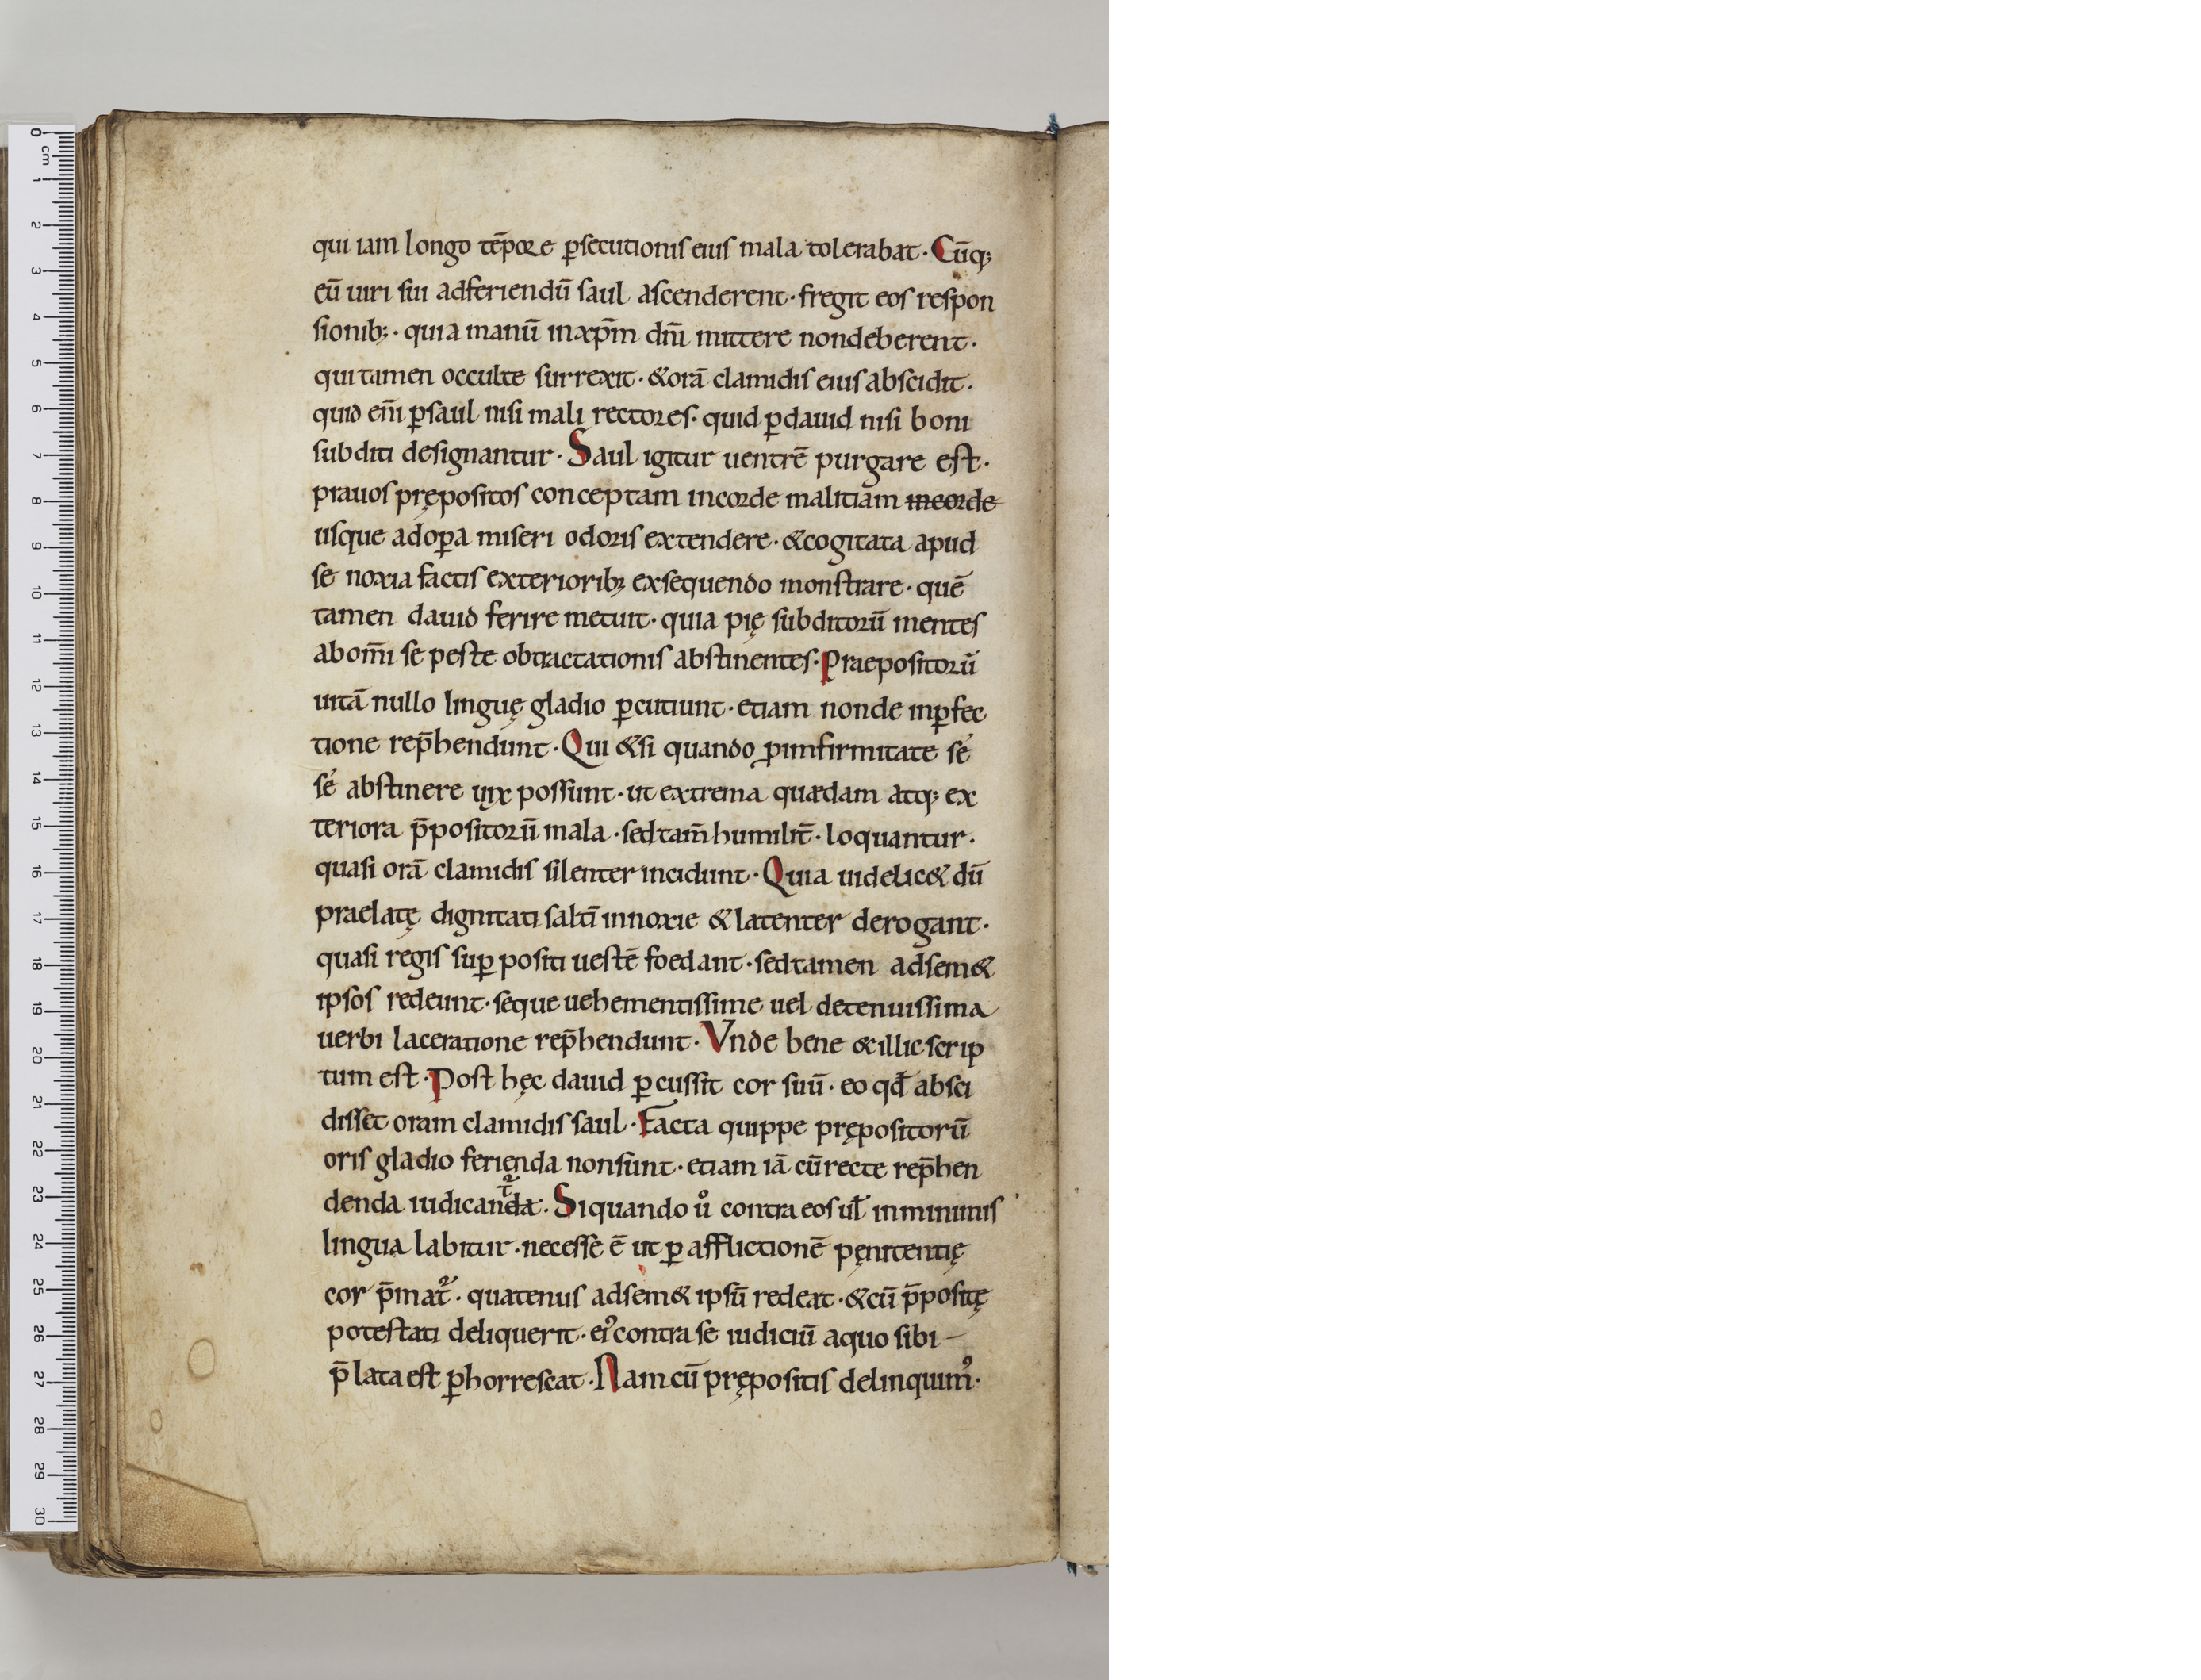 qui iam longo tēpore ꝑsecutionis eius mala tolerabat · Cūq;
eū uiri sui adferiendū saul ascenderent · fregit eos respon
sionib; · quia manū inxp̄m dn̄i mittere nondeberent ·
qui tamen occulte surrexit · & orā clamidis eius abscidit ·
quid eni̅ ꝑsaul nisi mali rectores · quid ꝑdauid nisi boni
subditi designantur · Saul igitur uentrē purgare est ·
prauos prępositos conceptam incorde malitiam incorde
usque adoꝑa miseri odoris extendere · & cogitata apud
se noxia factis exteriorib; exsequendo monstrare · quē
tamen dauid ferire metuit · quia pię subditorū mentes
abom̄i se peste obtractationis abstinentes · Praepositorū
uitā nullo linguę gladio ꝑcutiunt · etiam nonde inꝑfec
tione rep̄hendunt · Qui & si quando ꝓinfirmitate sé
sé abstinere uix possunt · ut extrema quædam atq; ex
teriora p̄positorū mala · sed tam̄ humilit̄ · loquantur ·
quasi orā clamidis silenter incidunt · Quia uidelic& dū
praelatę dignitati saltī innoxie & latenter derogant ·
quasi regis suꝑ positi uestē foedant · sed tamen adsem&
ipsos redeunt · seque uehementissime uel detenuissima
uerbi laceratione rep̄hendunt · Vnde bene & illic scrip
tum est · Post hęc dauid ꝑcussit cor suū · eo qđ absci
disset oram clamidis saul · Facta quippe prępositorū
oris gladio ferienda nonsunt · etiam iā cū recte rep̄hen
denda iudicanda · Si quando uͦ contra eos ul̄ inminimis
lingua labitur · necesse ē ut ꝑ afflictionē pęnitentię
cor p̄mat᷑ · quatenus adsem& ipsū redeat · & cū p̄positę
potestati deliquerit · ei᾿ contra se iudiciū aquo sibi
p̄lata est ꝑhorrescat · Nam cū prępositis delinquim᾿ ·
0 cm 1 2 3 4 5 6 7 8 9 10 11 12 13 14 15 16 17 18 19 20 21 22 23 24 25 26 27 28 29 30